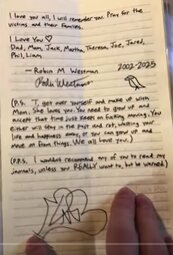 I love you all, I will remember you. Pray for the
victims and their families.
I Love You ♡
Dad, Mom, Jack, Martha, Theresa, Joe, Jared,
Phil, Liam,
— Robin M Westman 2002-2025
(P.S. get over yourself and make up with
Mom. She loves you. You need to grow up and
accept that time just keeps on fucking moving. You
either will stay in the past and rot, wasting your
life and happiness away, or you can grow up and
move on from things. We all love you.)
(P.P.S. I wouldn't recommend any of you to read my
journals, unless you REALLY want to, but be warned.)